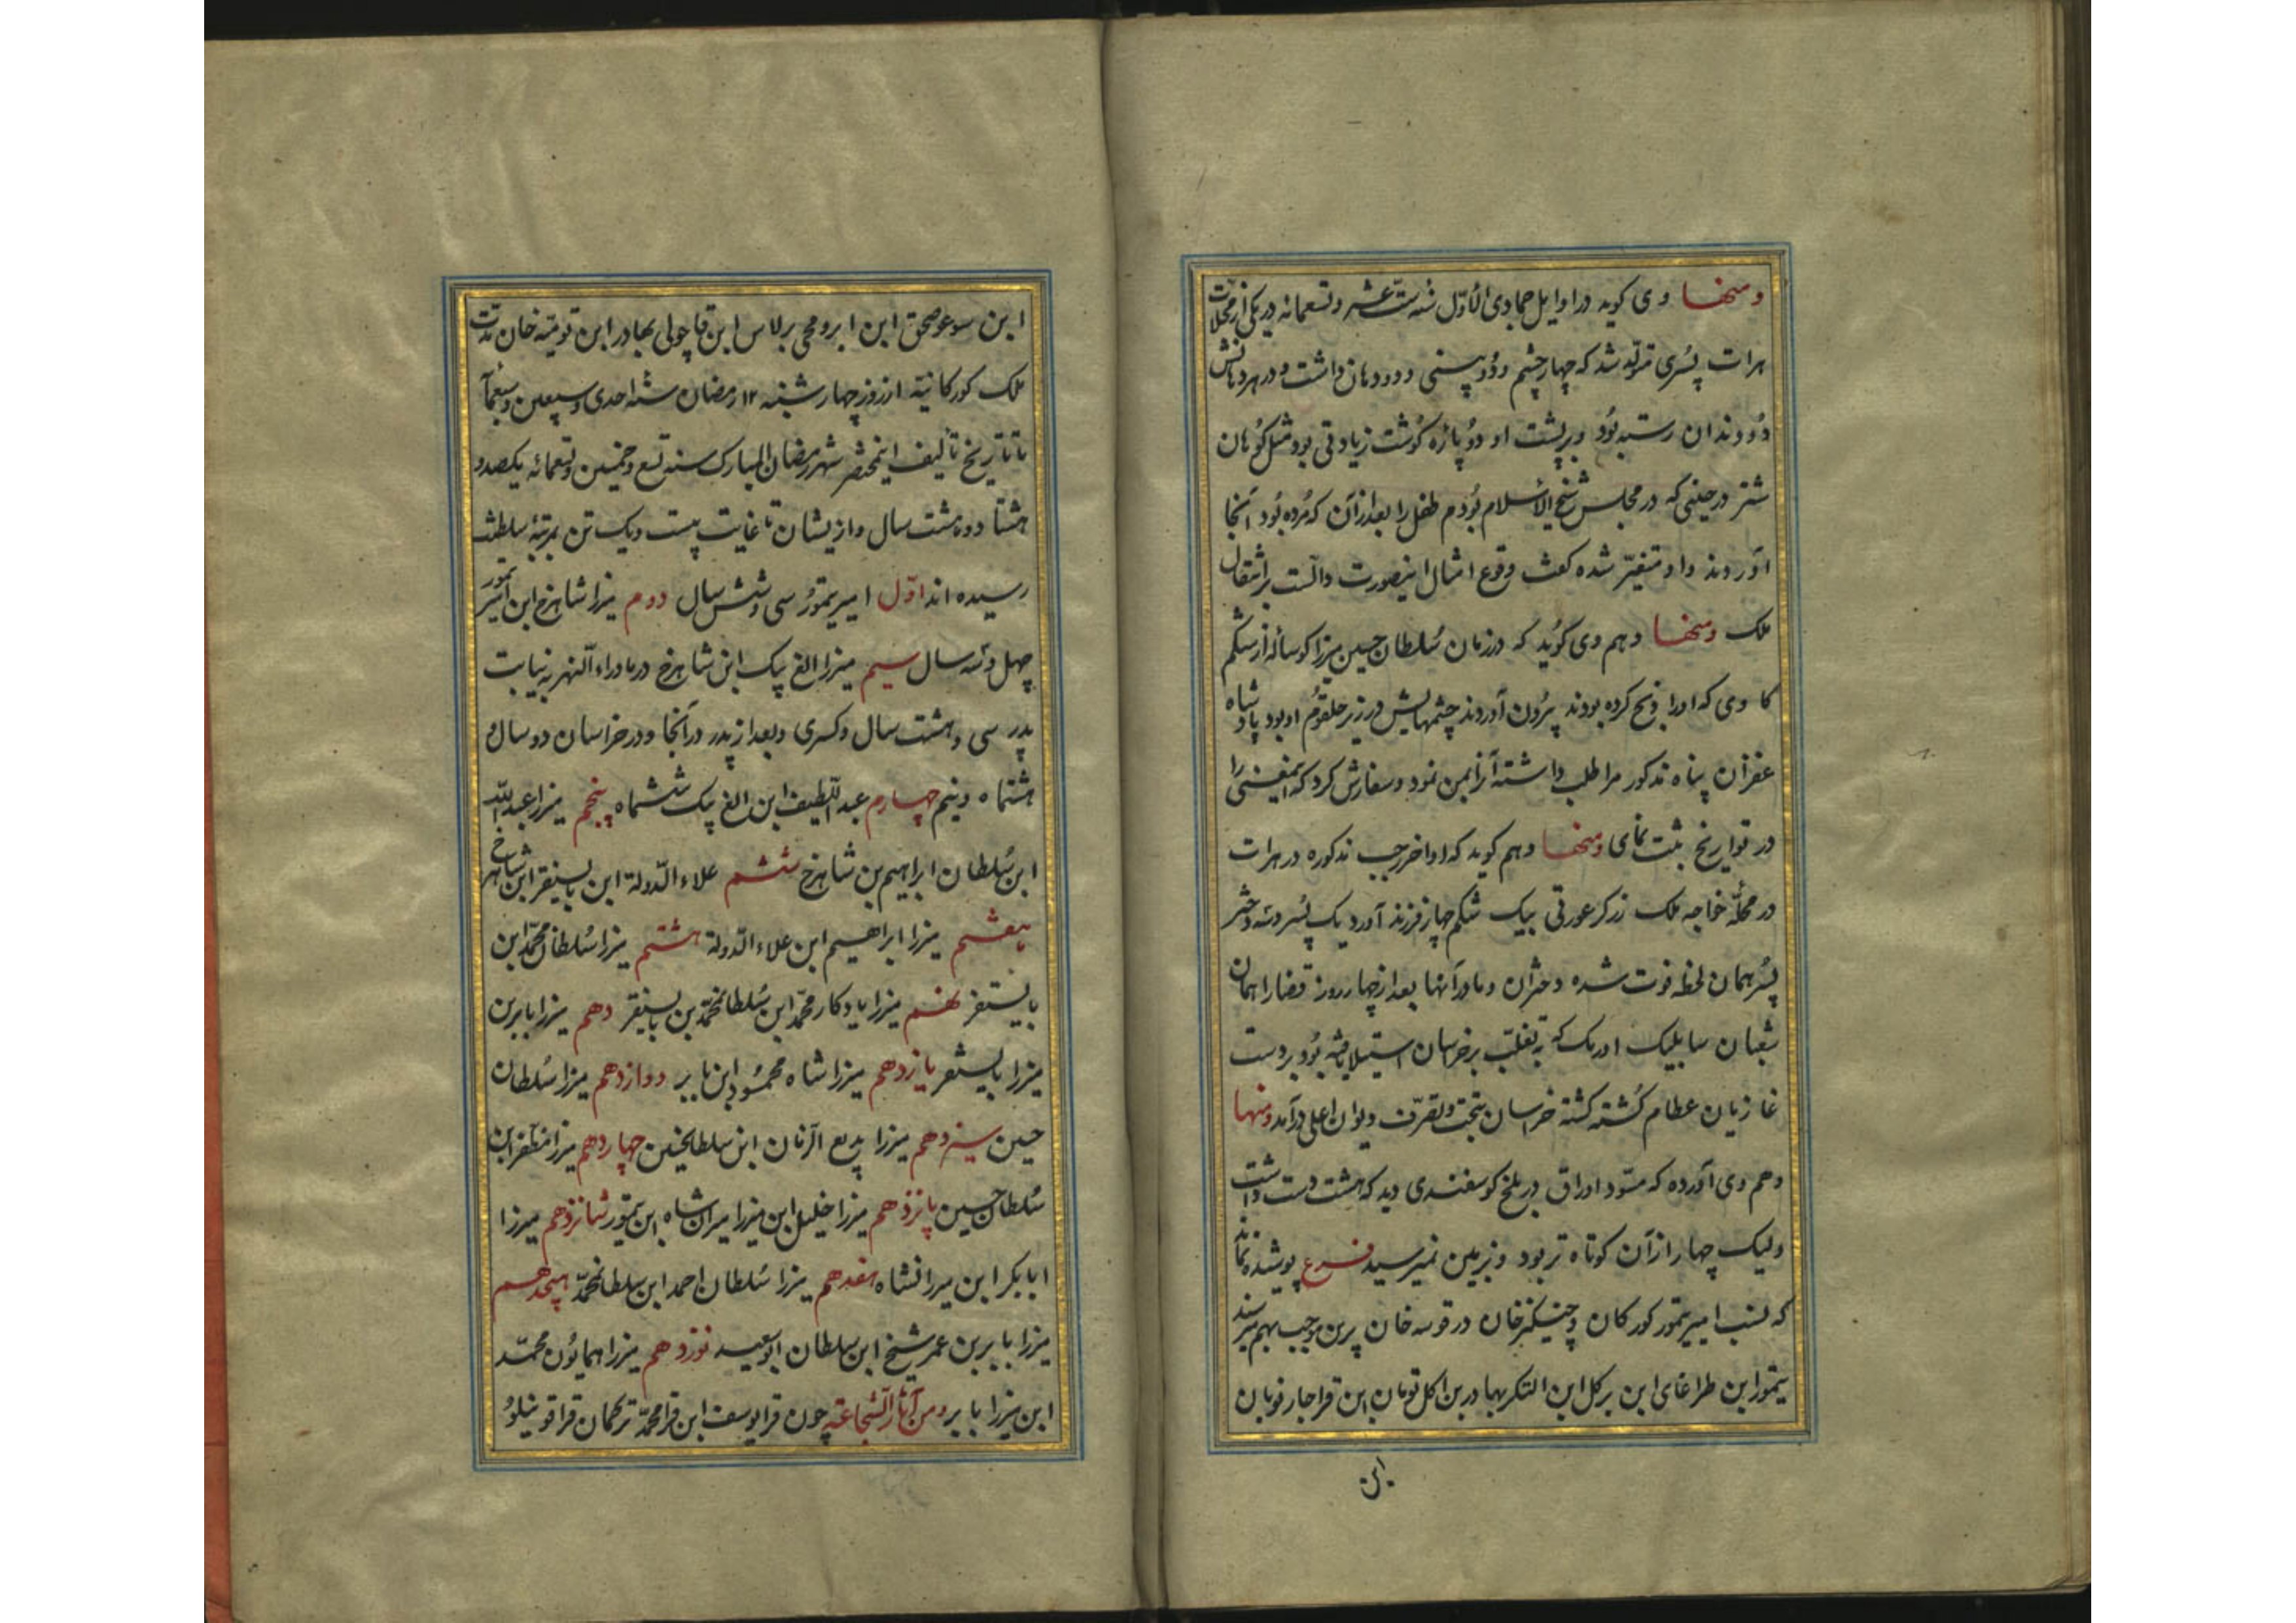 ومنها وی کوید در اوایل جمادی الاوّل سنه ستّ عشر وتسعمائه در یکی از محلات
هرات پسُری متولّد شد که چهار چشم ودُو بینی ودو دهان داشت ودر هر دهانش
دُو دندان رسته بُود وبر پشت او دُو پاره کُوشت زیادتی بود مثل کُوهان
شتر در حینی که در مجلس شیخ الاسلام بُودم طفل را بعد از آن که مُرده بُود آنجا
آوردند واو متغیّر شده کفت وقوع امثال اینصورت دالّست بر انتقال
ملک ومنها وهم وی کُوید که در زمان سُلطان حسین میرزا کوساله از شکم
کاوی که اورا ذبح کرده بودند بیرُون آوردند چشمهایش در زیر حلقوُم او بود پادشاه
غفران پناه مذکور مرا طلب داشته آنرا بمن نمود وسفارش کرد که اینمعنی را
در تواریخ ثبت نمای ومنها وهم کوید که اواخر رجب مذکوره در هرات
در محلّه خواجه ملک زرکر عورتی بیک شکم چهار فرزند آورد یک پسُر وسه دختر
پسُر همان لحظه فوت شده دختران ومادر آنها بعد از چهار روز قضارا همان
شعبان سابلیک اوزبک که به تغلّب بر خراسان استیلا یافته بُود بر دست
غازیان عظام کُشته کشته خراسان بتحت وتصرّف دیوان اعلی درآمد ومنها
وهم وی آورده که مسوّد اوراق در بلخ کوسفندی دید که هشت دست داشت
ولیک چهار از آن کوتاه تر بود وبزمین نمیرسید فرع پوشیده نماند
که نسب امیر تیمور کورکان وچنیکز خان در قومنه خان برین موجب بهم میرسد
تیمور ابن طراغای ابن برکل ابن النکر بهادر بن ایکل نویان ابن قراجار نویان
ابن
ابن سوغوجحق ابن ابرومجی برلاس ابن قاجولی بهادر ابن تومنه خان مدّت
ملک کورکانیّه از روز چهارشنبه ١٢ رمضان سنه احدی وسبعین وسبعمآ
تا تاریخ تألیف اینمختصر شهر رمضان المبارک سنه تسع وخمسین وتسعمائه یکصد و
هشتاد وهشت سال وازیشان تا غایت بیست ویک تن بمرتبهٔ سلطنت
رسیده اند اوّل امیر تیمُور سی وشش سال دوم میرزا شاهرخ ابن امیر تیمور
چهل وسه سال سیم میرزا الغ بیک ابن شاهرخ در ماوراء النهر به نیابت
پدر سی وهشت سال وکسری وبعد از پدر در آنجا ودر خراسان دو سال و
هشتماه ونیم چهارم عبد اللّطیف ابن الغ بیک ششماه پنجم میرزا عبد اللّه
ابن سُلطان ابراهیم بن شاهرخ ششم علاء الدّولة ابن بایسنقر ابن شاهرخ
هفتم میرزا ابراهیم ابن علاء الدّولة هشتم میرزا سُلطان محمّد ابن
بایسنقر نهم میرزا یادکار محمّد ابن سُلطانمحمّد بن بایسنقر دهم میرزا بابر بن
میرزا بایسنقر یازدهم میرزا شاه محمُود ابن بابر دوازدهم میرزا سُلطان
حسین سیزدهم میرزا بدیع الزمان ابن سلطانحسین چهاردهم میرزا مظفر ابن
سُلطان حسین پانزدهم میرزا خلیل ابن میرزا میرانشاه ابن تیمور شانزدهم میرزا
ابابکر ابن میرانشاه هفدهم میرزا سُلطان احمد ابن سلطانمحمّد هیجدهم
میرزا بابر بن عمر شیخ ابن سلطان ابوسعید نوزدهم میرزا همایُون محمّد
ابن میرزا بابر ومن آثار الشجاعته چون قرایوسف ابن قرامحمّد ترکمان قراقوینلوُ